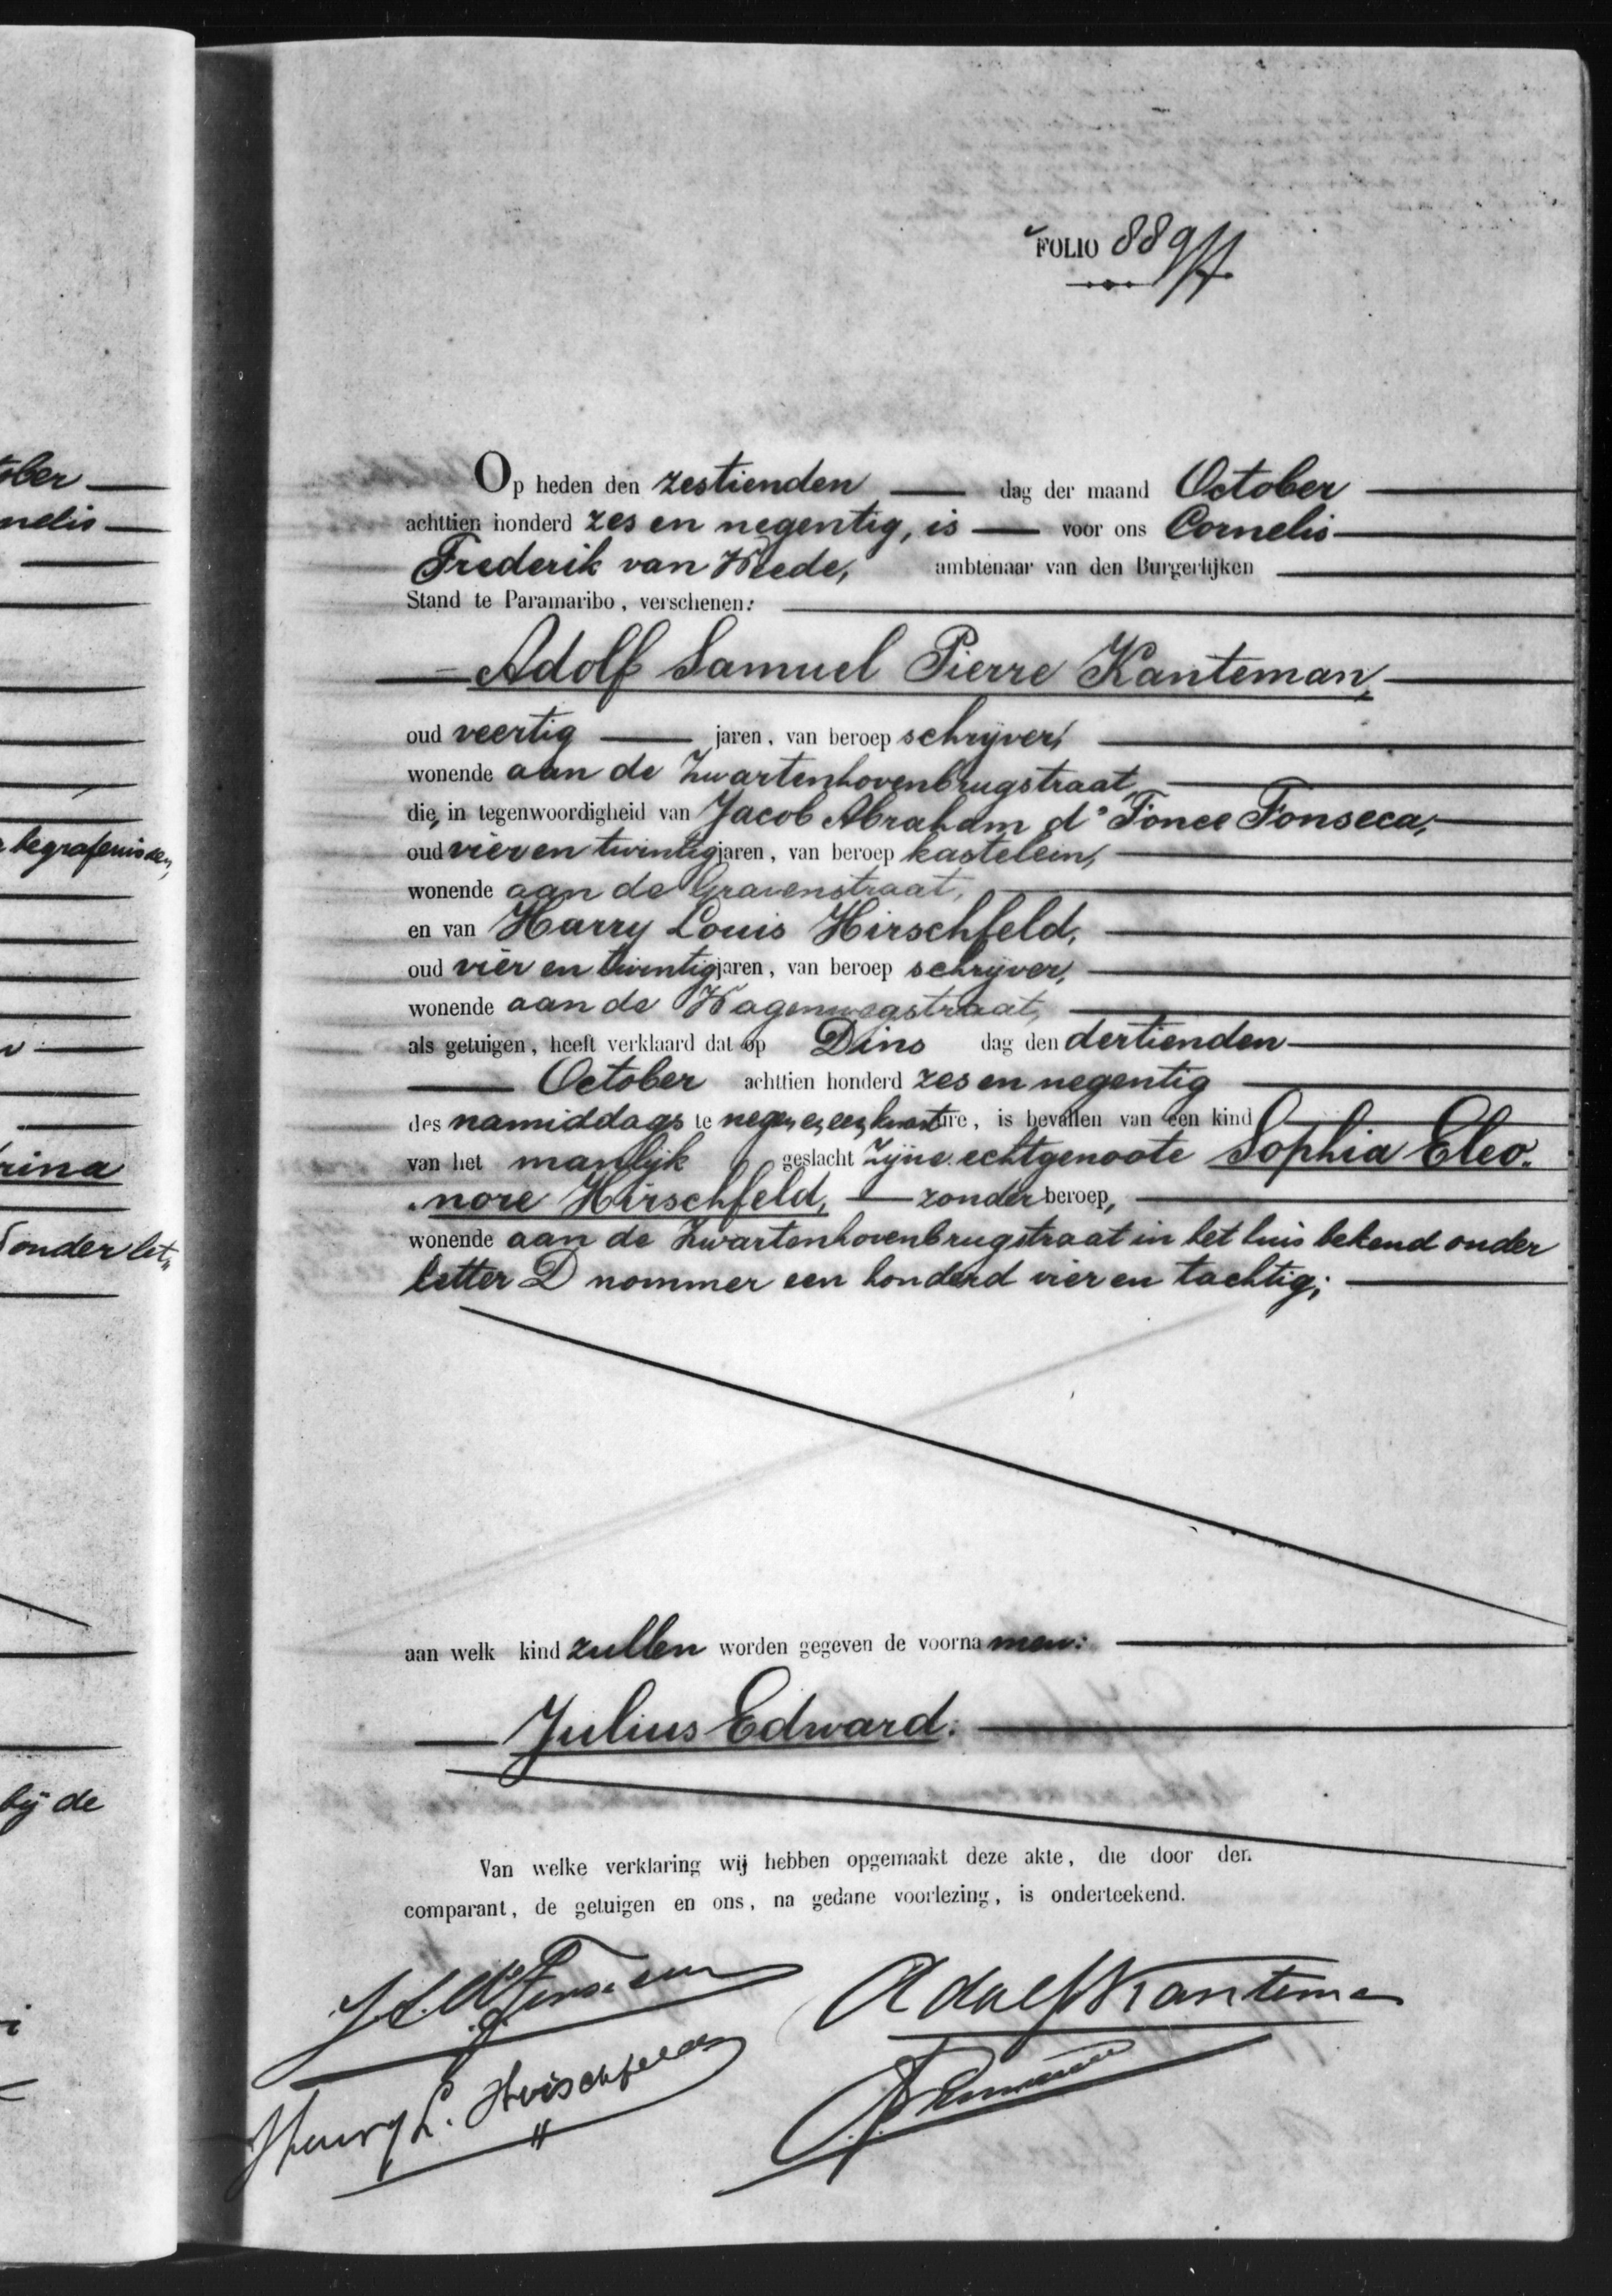 tober
nelis
begrafenis den,
rina
onder let„
bij de
FOLIO 889
Op heden den zestienden dag der maand October
achttien honderd zes en negentig, is voor ons Cornelis
Frederik van Weede, ambtenaar van den Burgerlijken
Stand te Paramaribo, verschenen:
Adolf Samuel Pierre Kanteman,
oud veertig jaren, van beroep schrijver,
wonende aan de Zwartenhovenbrugstraat,
die, in tegenwoordigheid van Jacob Abraham d' Fonce Fonseca,
oud vier en twintig jaren, van beroep kastelein,
wonende aan de Gravenstraat,
en van Harry Louis Hirschfeld,
oud vier en twintig jaren, van beroep schrijver,
wonende aan de Wagenwegstraat,
als getuigen, heeft verklaard dat op Dins dag den dertienden
October achttien honderd zes en negentig
des namiddags te negen en een kwart ure, is bevallen van een kind
van het manlijk geslacht zijne echtgenoote Sophia Eleo-
nore Hirschfeld, zonder beroep,
wonende aan de Zwartenhovenbrugstraat in het huis bekend onder
letter D nommer een honderd vier en tachtig;
aan welk kind zullen worden gegeven de voornamen:
Julius Edward.
Van welke verklaring wij hebben opgemaakt deze akte, die door den
comparant, de getuigen en ons, na gedane voorlezing, is onderteekend.
Adolf Kanteman
Harry L. Hirschfeld